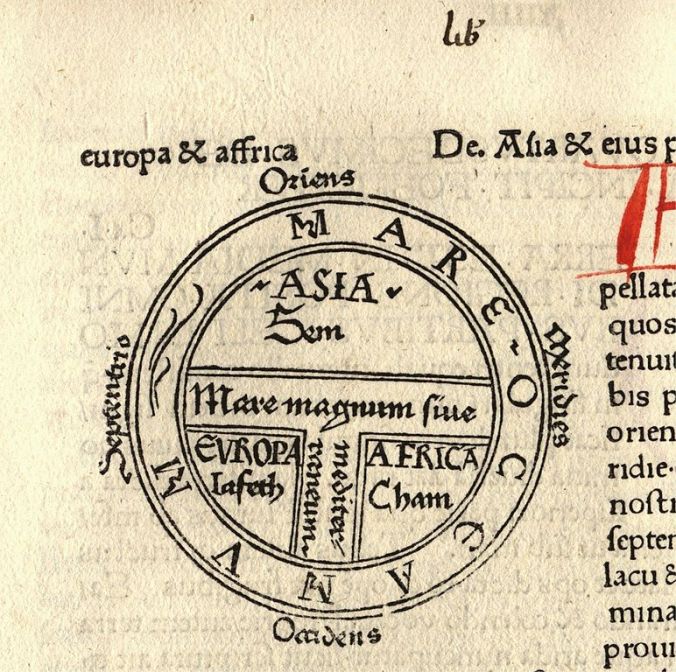 lib
europa & affrica
De. Asia & eius p
Oriens
MARE~OCEANVM
ASIA
Sem
Septentrio
Meridies
Mare magnum siue
mediter
raneum
EVROPA
Iafeth
AFRICA
Cham
Occidens
pellata
quos
tenuit
bis p
orien
ridie·
nostr
septen
lacu &
mina
proui